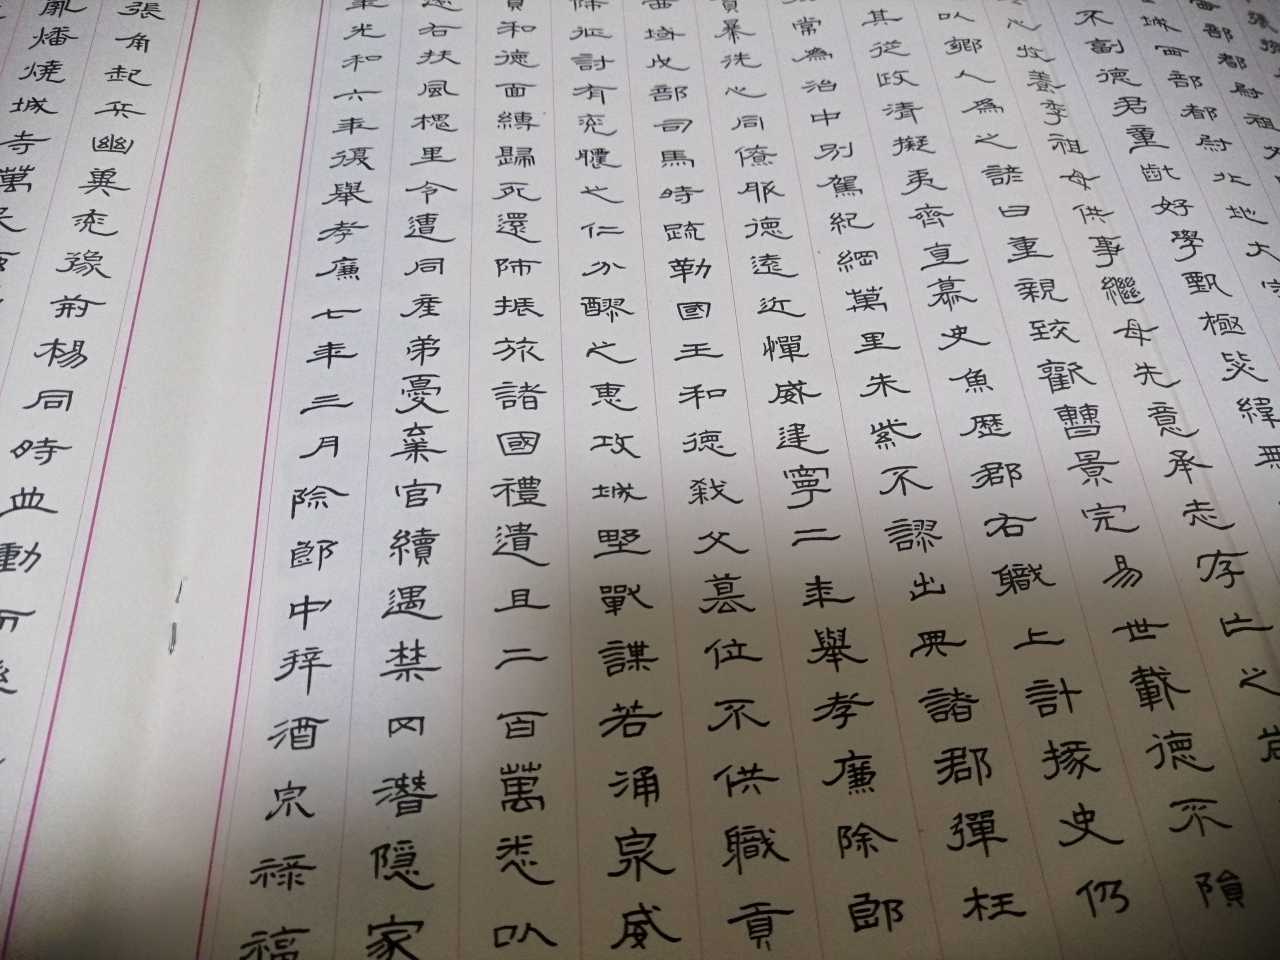 部都尉祖父
城西部都尉北地大
不副德君童齔好學甄極毖緯無
心收養季祖母供事繼母先意承志存亡之
以鄉人為之諺曰重親致歡曹景完易世載德不隕
其從政清擬夷齊直慕史魚歷郡右職上計掾史仍
常為治中別駕紀綱萬里朱紫不謬出典諸郡彈枉
貪暴洗心同僚服德遠近憚威建寧二年舉孝廉除郎
西域戊部司馬時疏勒國王和德弒父篡位不供職貢
師征討有兗膿之仁分醪之惠攻城野戰謀若涌泉威
賁和德面縛歸死還師振旅諸國禮遺且二百萬悉以
遷右扶風槐里令遭同產弟憂棄官續遇禁冈潛隱家
年光和六年復舉孝廉七年三月除郎中拜酒泉祿福
張角起兵幽冀兗豫荊楊同時並動而縣
亂燔燒城寺萬民